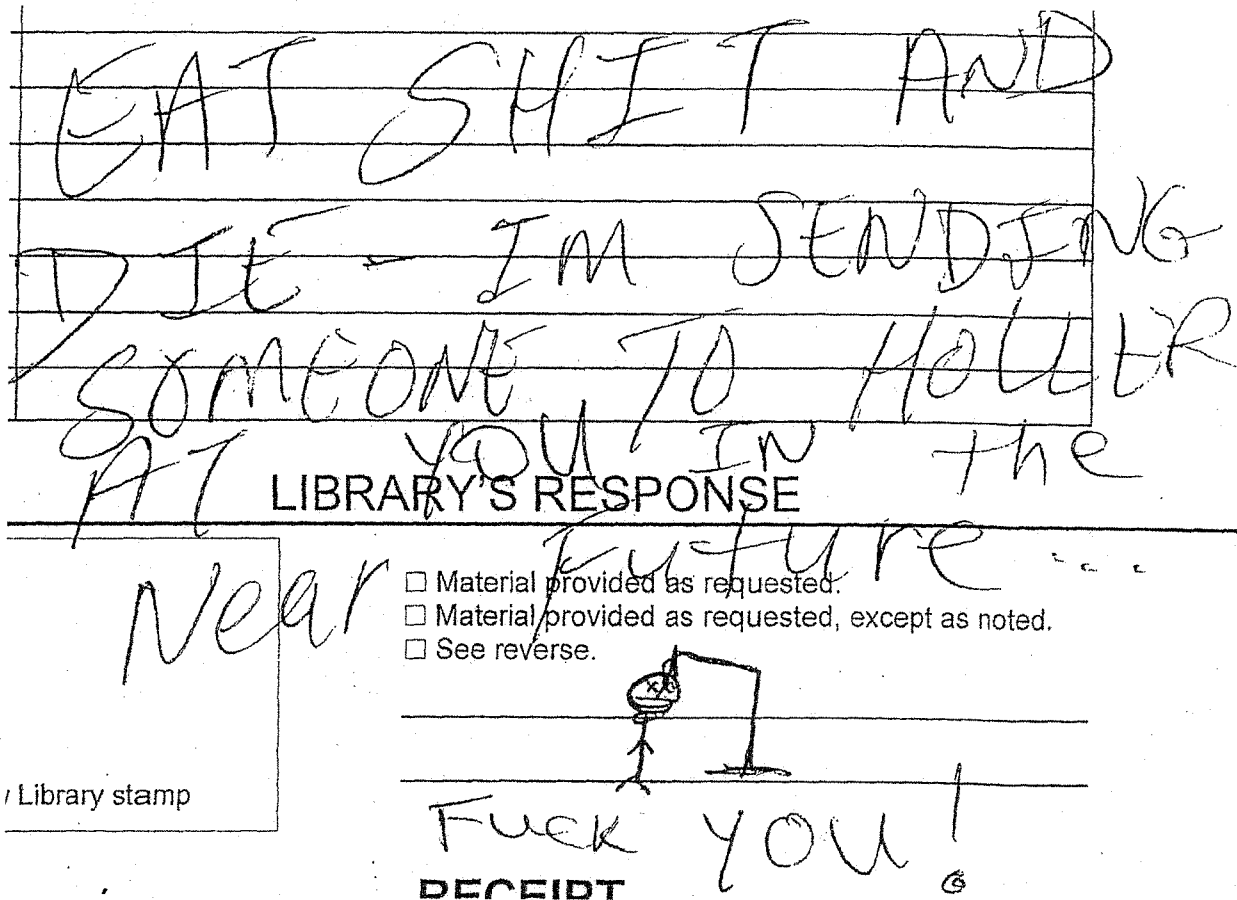 EAT SHIT AND
DIE - IM SENDING
SOMEONE TO HOLLER
AT YOU IN the
LIBRARY'S RESPONSE
Near Future...
□ Material provided as requested.
□ Material provided as requested, except as noted.
□ See reverse.
Library stamp
FUCK YOU!
RECEIPT